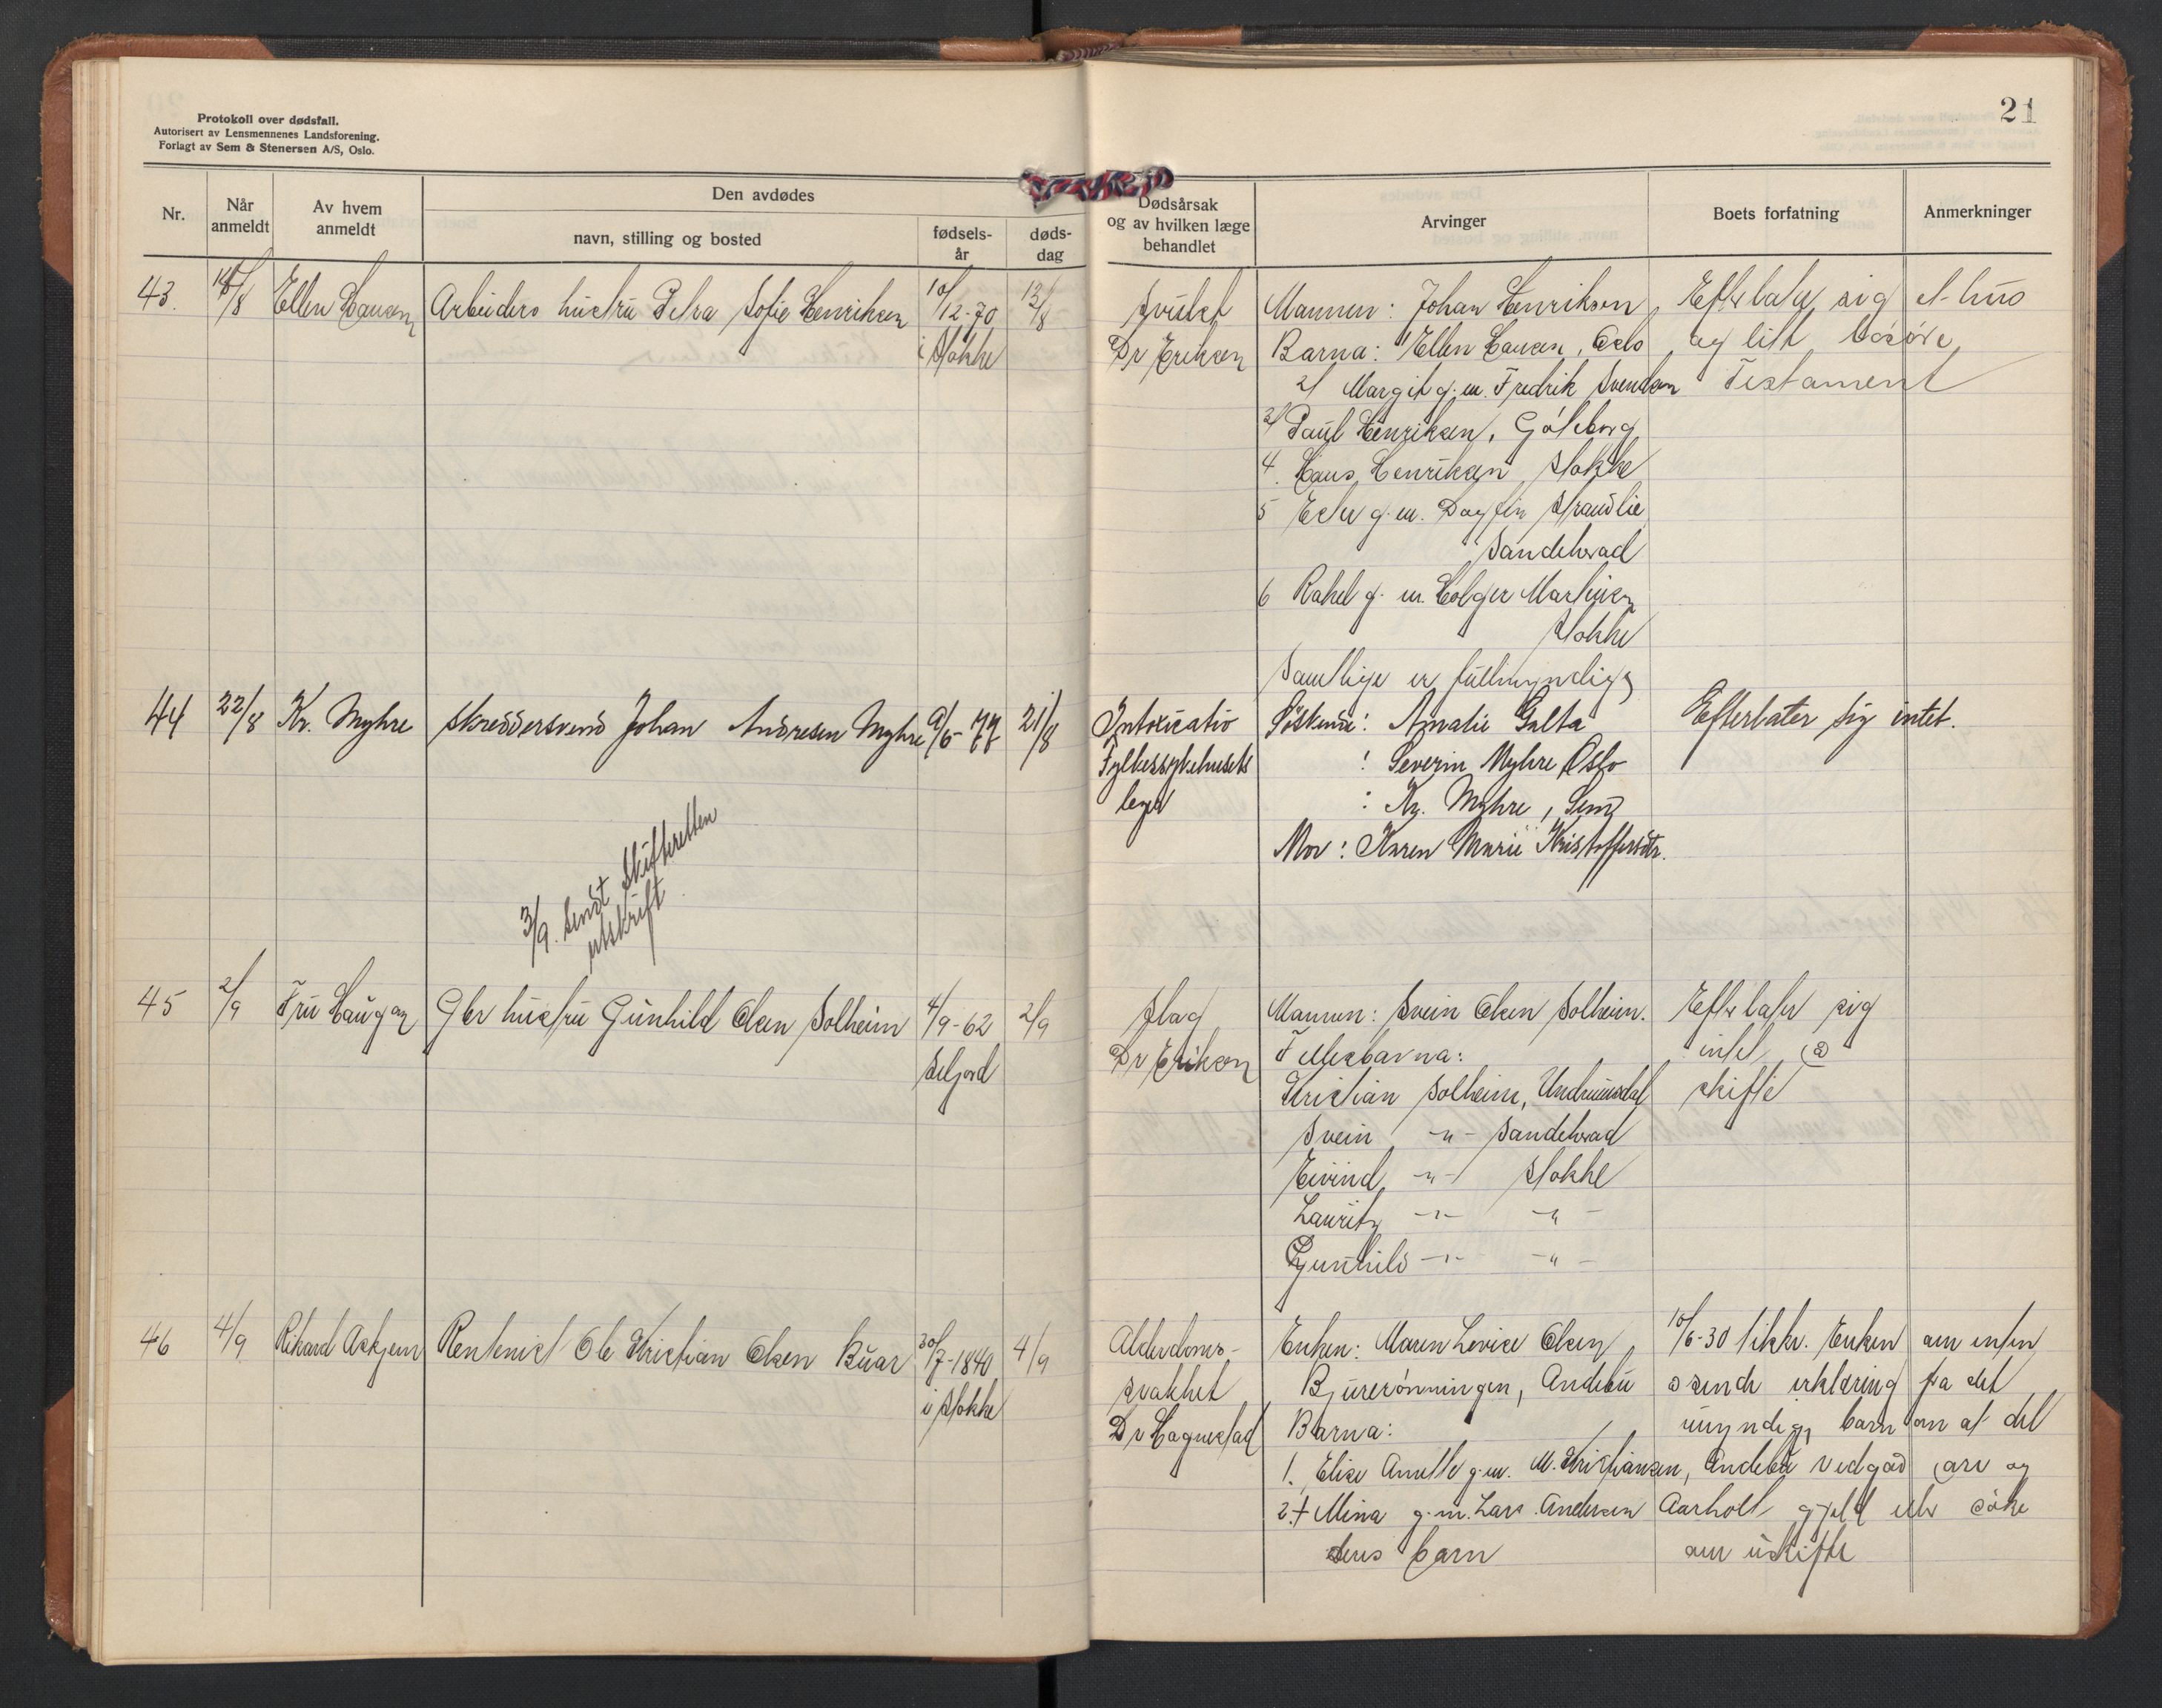 Protokoll over dødsfall.
Autorisert av Lensmennenes Landsforening.
Forlagt av Sem & Stenersen A/S, Oslo.
21
Nr.
Når anmeldt
Av hvem anmeldt
Den avdødes
navn, stilling og bosted
fødsels-år
døds-dag
Dødsårsak og av hvilken læge behandlet
Arvinger
Boets forfatning
Anmerkninger
43. /8 Ellen Hansen Arbeiders hustru Petra Sofie Henriksen 10/12-70 12/8
i Stokke
Dr Eriksen
Mannen: Johan Henriksen
Barna: 1/ Ellen Hansen, Oslo
2/ Margit g.m. Fredrik Svendsen
3/ Paul Henriksen, Göteborg
4. Hans Henriksen, Stokke
5 Ester g.m. Dagfin Strandlie
Sandeherad
6 Rakel g.m. Holger Martinsen
Stokke
Samtlige er fullmyndige
Efterlater sig et hus
og litt løsøre
Testament
44 22/8 Kr. Myhre Skreddersvend Johan Andresen Myhre 9/5-77 21/8
3/9. Sendt Skifteretten
utskrift
Intoxicatio
Fylkessykehusets
leger
Söskende: Amalie Galta
: Severin Myhre, Oslo
: Kr. Myhre, Sem
Mor: Karen Marie Kristoffersdtr.
Efterlater sig intet.
45 2/9 Fru Haugan Gbr hustru Gunhild Olsen Solheim 4/9-62 2/9
Seljord
Slag
Dr Eriksen
Mannen: Svein Olsen Solheim.
Fellesbarna:
Kristian Solheim, Undrumsdal
Svein -"- Sandeherad
Eivind -"- Stokke
Lauritz -"- -"-
Gunhild -"- -"-
Efterlater sig
intet
skifte
46 4/9 Rikard Askjem Rentenist Ole Kristian Olsen Buar 30/7-1840 4/9
i Stokke
Alderdoms-
svakhet
Dr Hagnestad
Enken: Maren Lovise Olsen
Bjuerönningen, Andebu
Barna:
1. Elise Anette g.m. M. Kristiansen, Andebu
2. + Mina g.m. Lars Andersen Aarholt
dens barn
10/6-30 tilskr. Enken om enten
å sende erklæring fra det
umyndige barn om at det
vedgår arv og
gjeld eller söke
om uskifte